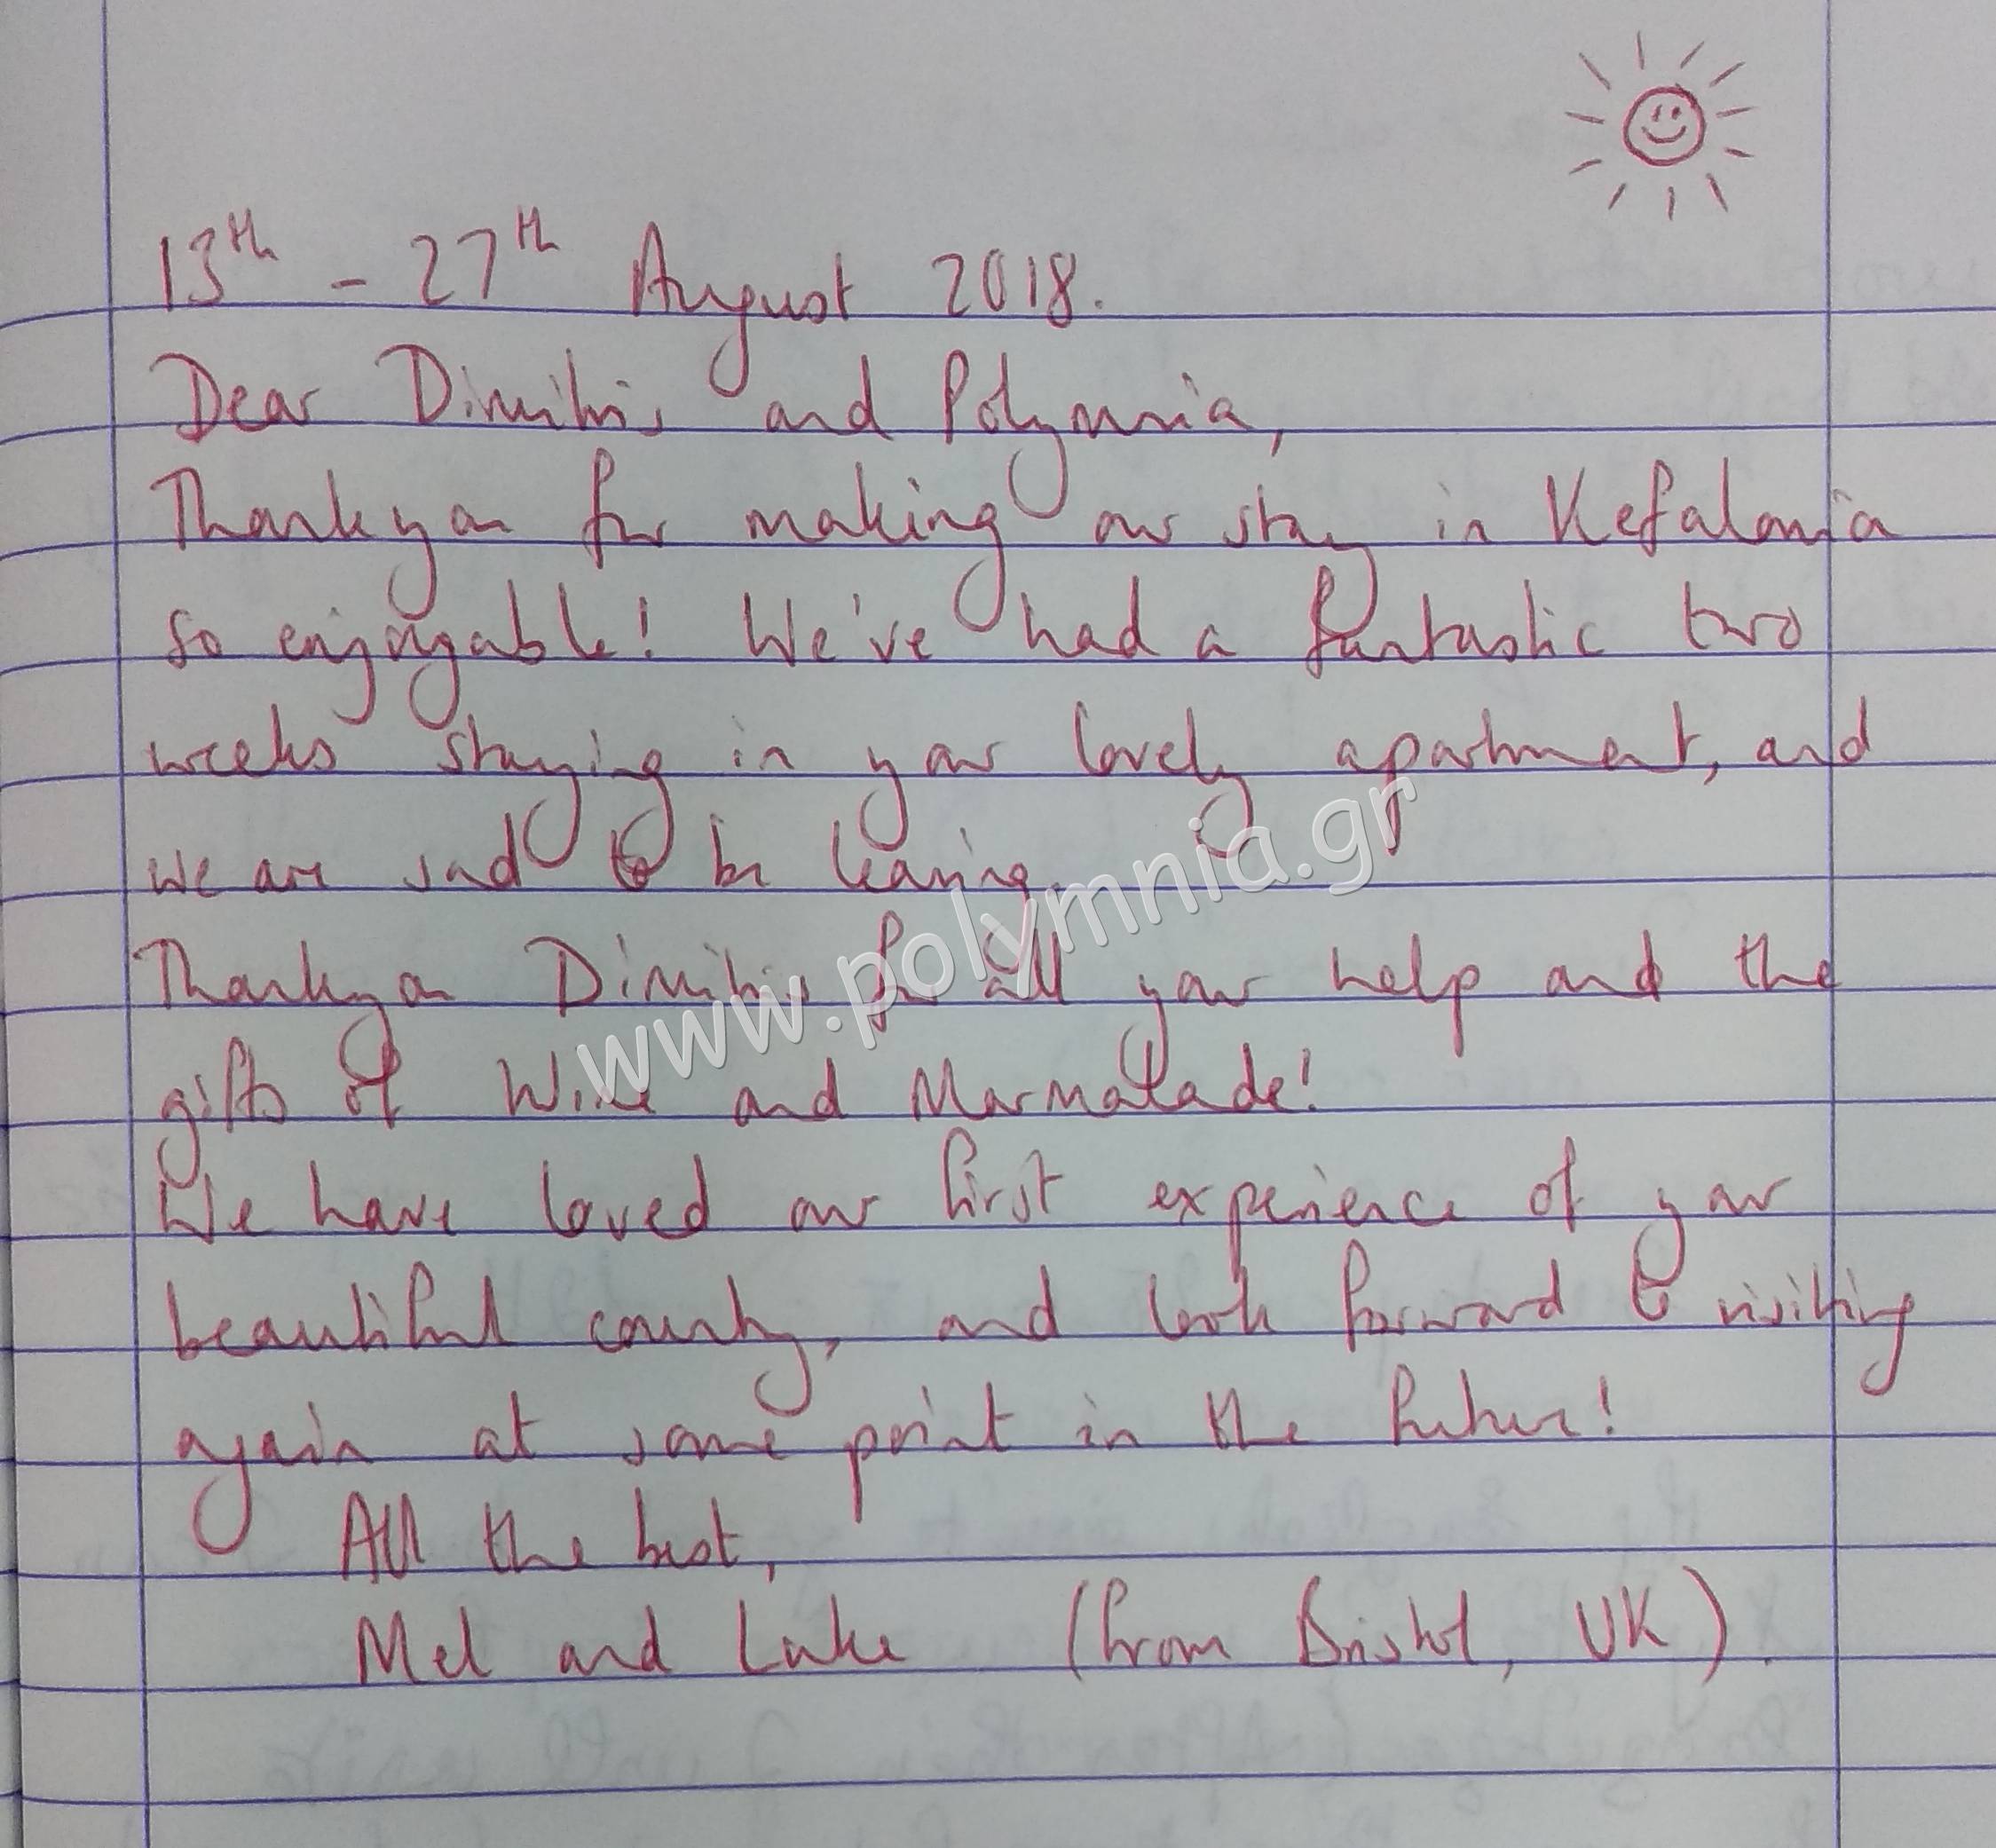 13th - 27th August 2018.
Dear Dimitris and Polymnia,
Thankyou for making our stay in Kefalonia
so enjoyable! We've had a fantastic two
weeks staying in your lovely apartment, and
we are sad to be leaving.
Thankyou Dimitris for all your help and the
gifts of Wine and Marmalade!
We have loved our first experience of your
beautiful country, and look forward to visiting
again at some point in the future!
All the best,
Mel and Luke (from Bristol, UK).
www.polymnia.gr